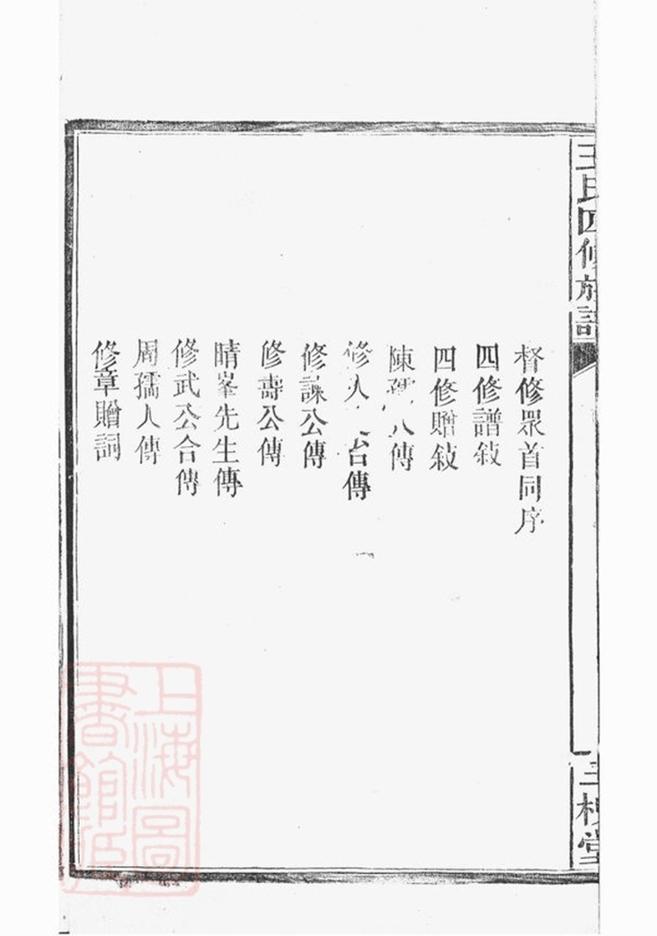 王氏四修族譜
督修眾首同序
四修譜敍
四修贈敍
陳孺人傳
修人 合傳
修謀公傳
修壽公傳
晴峯先生傳
修武公合傳
周孺人傳
修章贈詞
三槐堂
上海圖書館藏